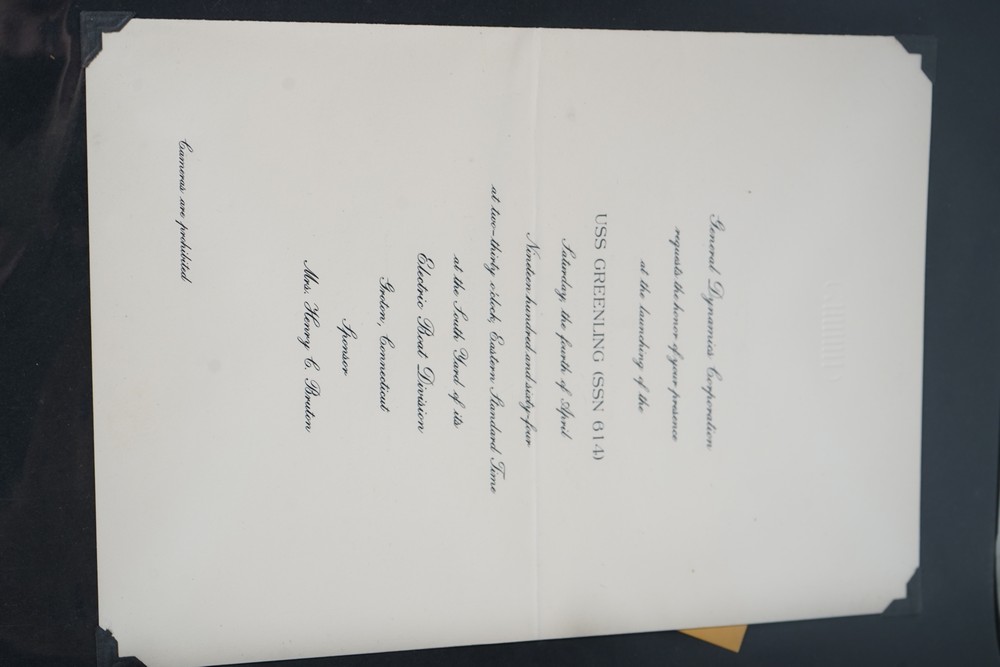 General Dynamics Corporation
requests the honor of your presence
at the launching of the
USS GREENLING (SSN 614)
Saturday, the fourth of April
Nineteen hundred and sixty-four
at two-thirty o'clock, Eastern Standard Time
at the South Yard of its
Electric Boat Division
Groton, Connecticut
Sponsor
Mrs. Henry C. Bruton
Cameras are prohibited